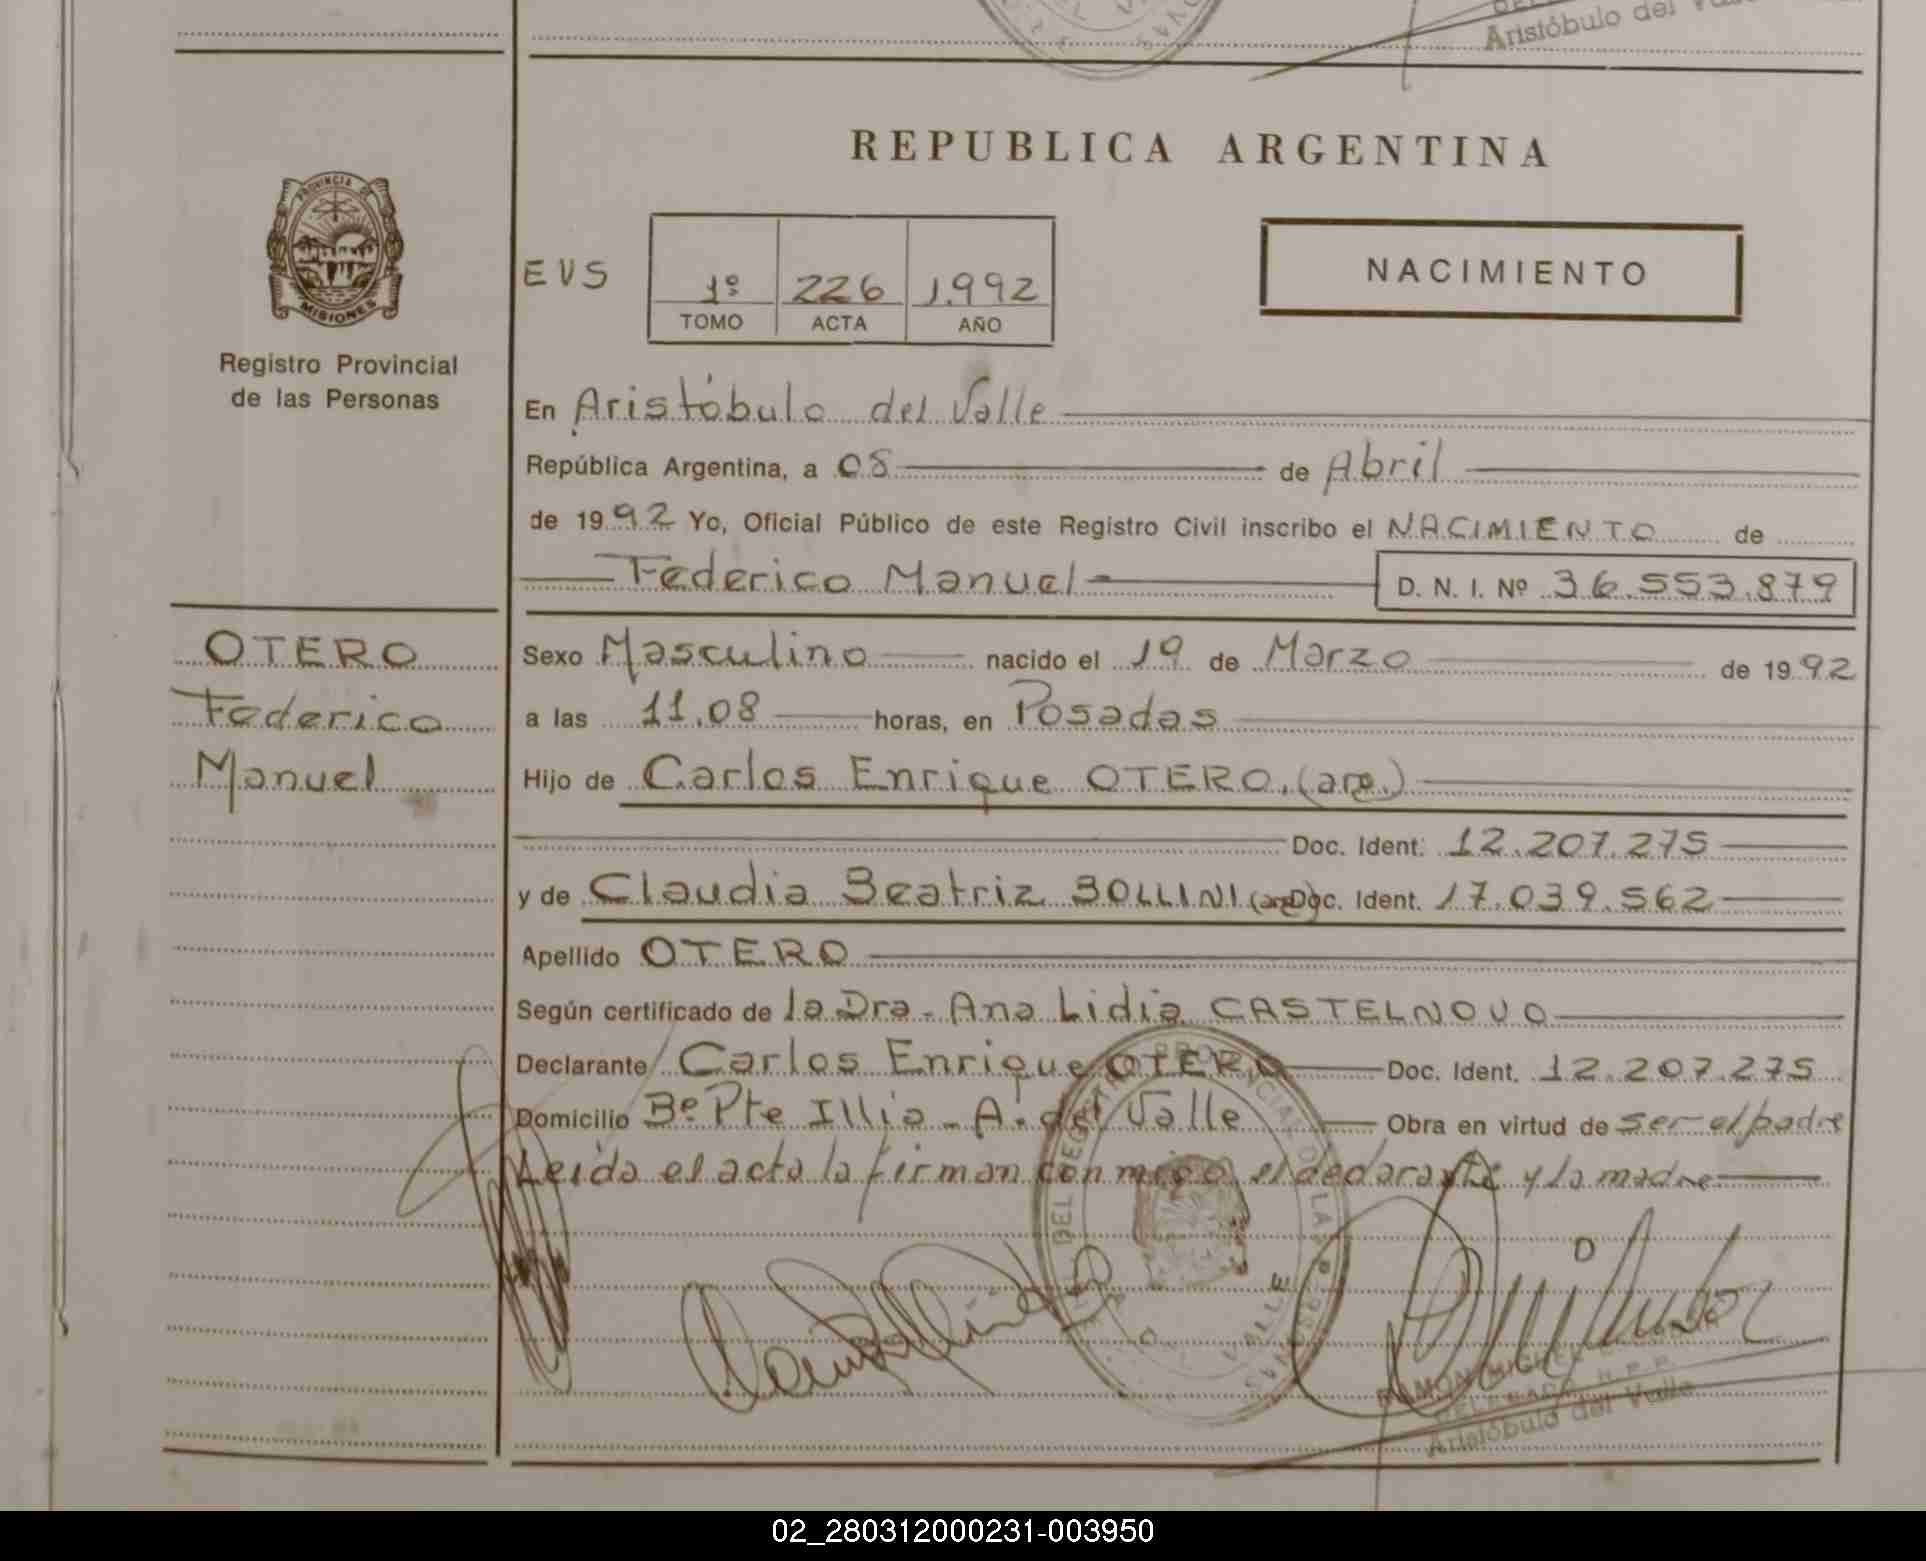 Aristóbulo del Valle
REPUBLICA ARGENTINA
PROVINCIA DE
MISIONES
Registro Provincial
de las Personas
EVS
1º 226 1.992
TOMO ACTA AÑO
NACIMIENTO
En Aristóbulo del Valle
República Argentina, a 08 de Abril
de 1992 Yo, Oficial Público de este Registro Civil inscribo el NACIMIENTO de
Federico Manuel D. N. I. Nº 36.553.879
OTERO
Federico
Manuel
Sexo Masculino nacido el 19 de Marzo de 1992
a las 11.08 horas, en Posadas
Hijo de Carlos Enrique OTERO, (arg.)
Doc. Ident: 12.207.275
y de Claudia Beatriz BOLLINI (arg) Doc. Ident. 17.039.562
Apellido OTERO
Según certificado de la Dra - Ana Lidia CASTELNOVO
Declarante Carlos Enrique OTERO Doc. Ident. 12.207.275
Domicilio Bº Pte Illia - A. del Valle Obra en virtud de ser el padre
Leida el acta la firman conmigo el declarante y la madre
DEL REGISTRO PROVINCIAL DE LAS PERSONAS
VALLE
RAMON MIGUEL
DELEGADO R.P.P.
Aristóbulo del Valle
02_280312000231-003950